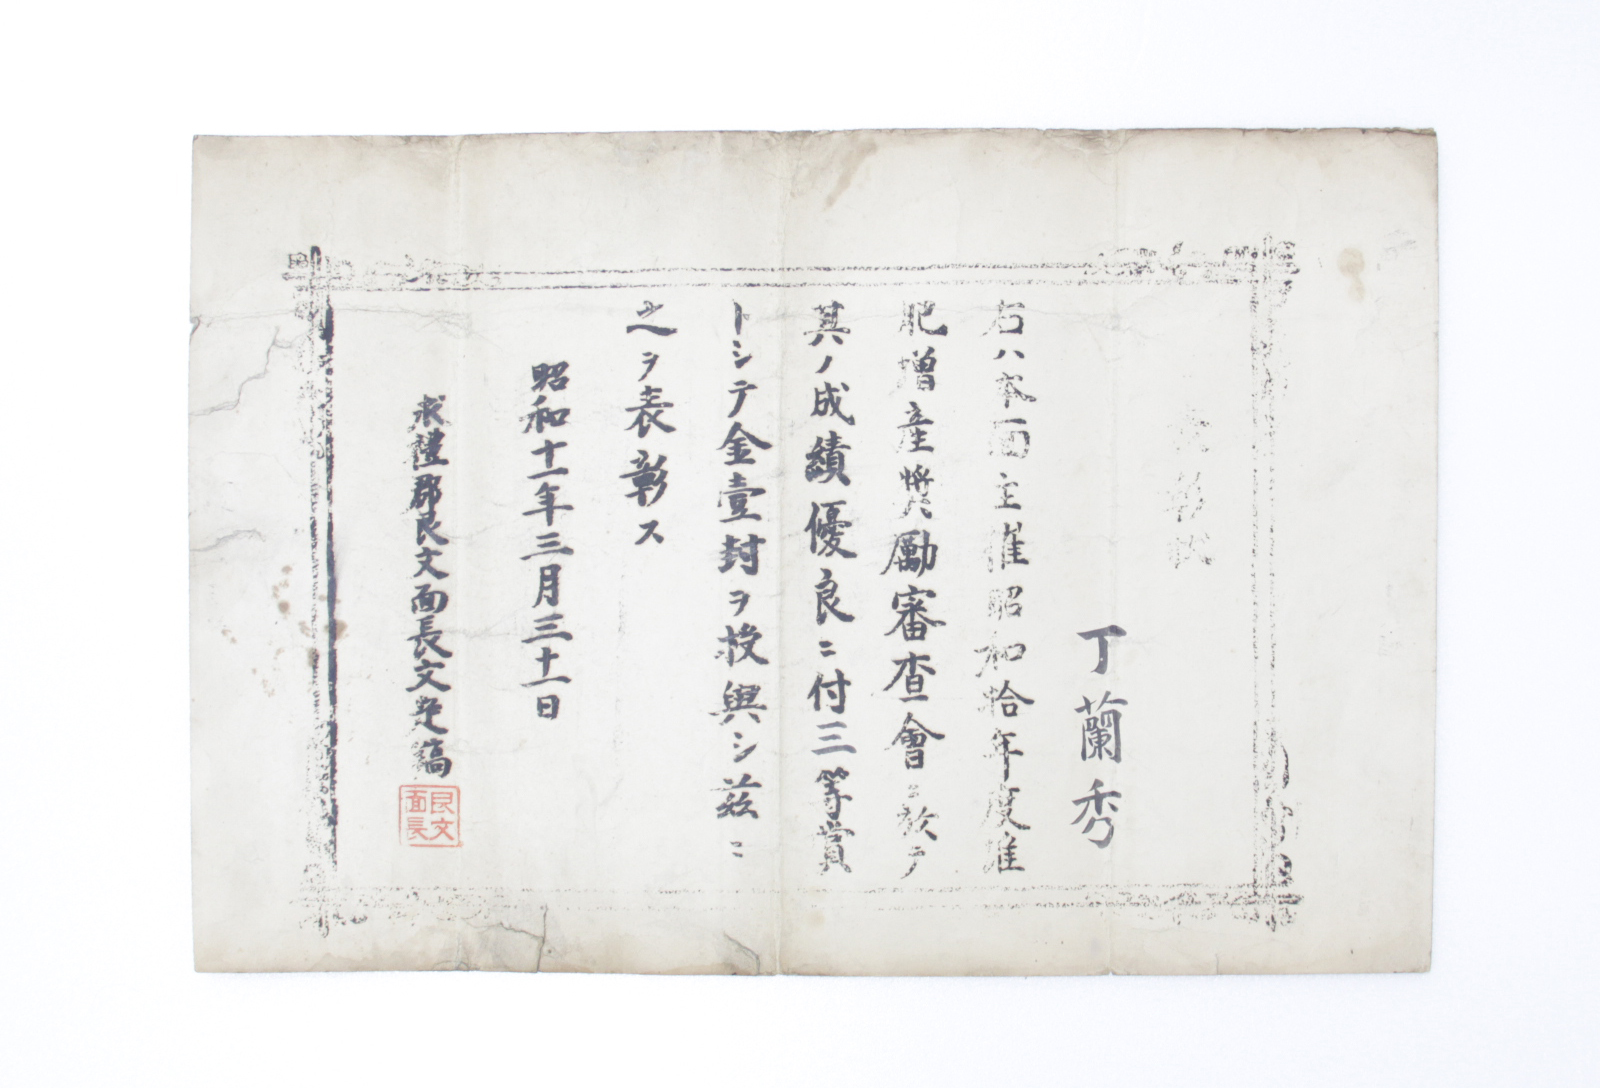 表彰狀
丁蘭秀
右ハ本面主催昭和拾年度堆
肥增産奬勵審査會ニ於テ
其ノ成績優良ニ付三等賞
トシテ金壹封ヲ授與シ茲ニ
之ヲ表彰ス
昭和十一年三月三十一日
求禮郡艮文面長文定鎬
艮文
面長